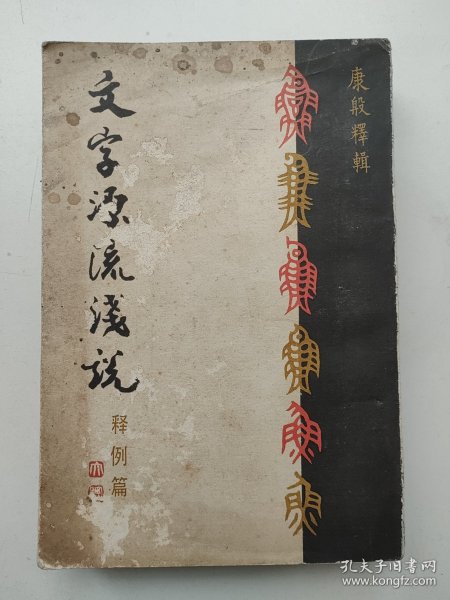 康殷釋輯
文字源流淺說
释例篇
孔夫子旧书网
www.kongfz.com